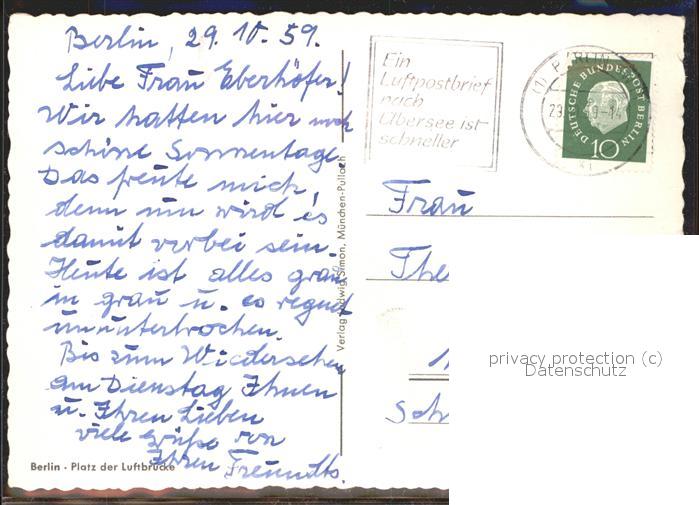 Berlin, 29.10.59.
Liebe Frau Eberhöfer!
Wir hatten hier noch
schöne Sonnentage.
Das freute mich,
denn nun wird es
damit vorbei sein.
Heute ist alles grau
in grau u. es regnet
ununterbrochen.
Bis zum Wiedersehen
am Dienstag Ihnen
u. Ihren Lieben
viele Grüße von
Ihren
Berlin - Platz der Luftbrücke
Verlag Ludwig Simon, München-Pullach
Ein
Luftpostbrief
nach
Übersee ist
schneller
BERLIN
DEUTSCHE BUNDESPOST BERLIN
10
Frau
The
Sch
privacy protection (c)
Datenschutz